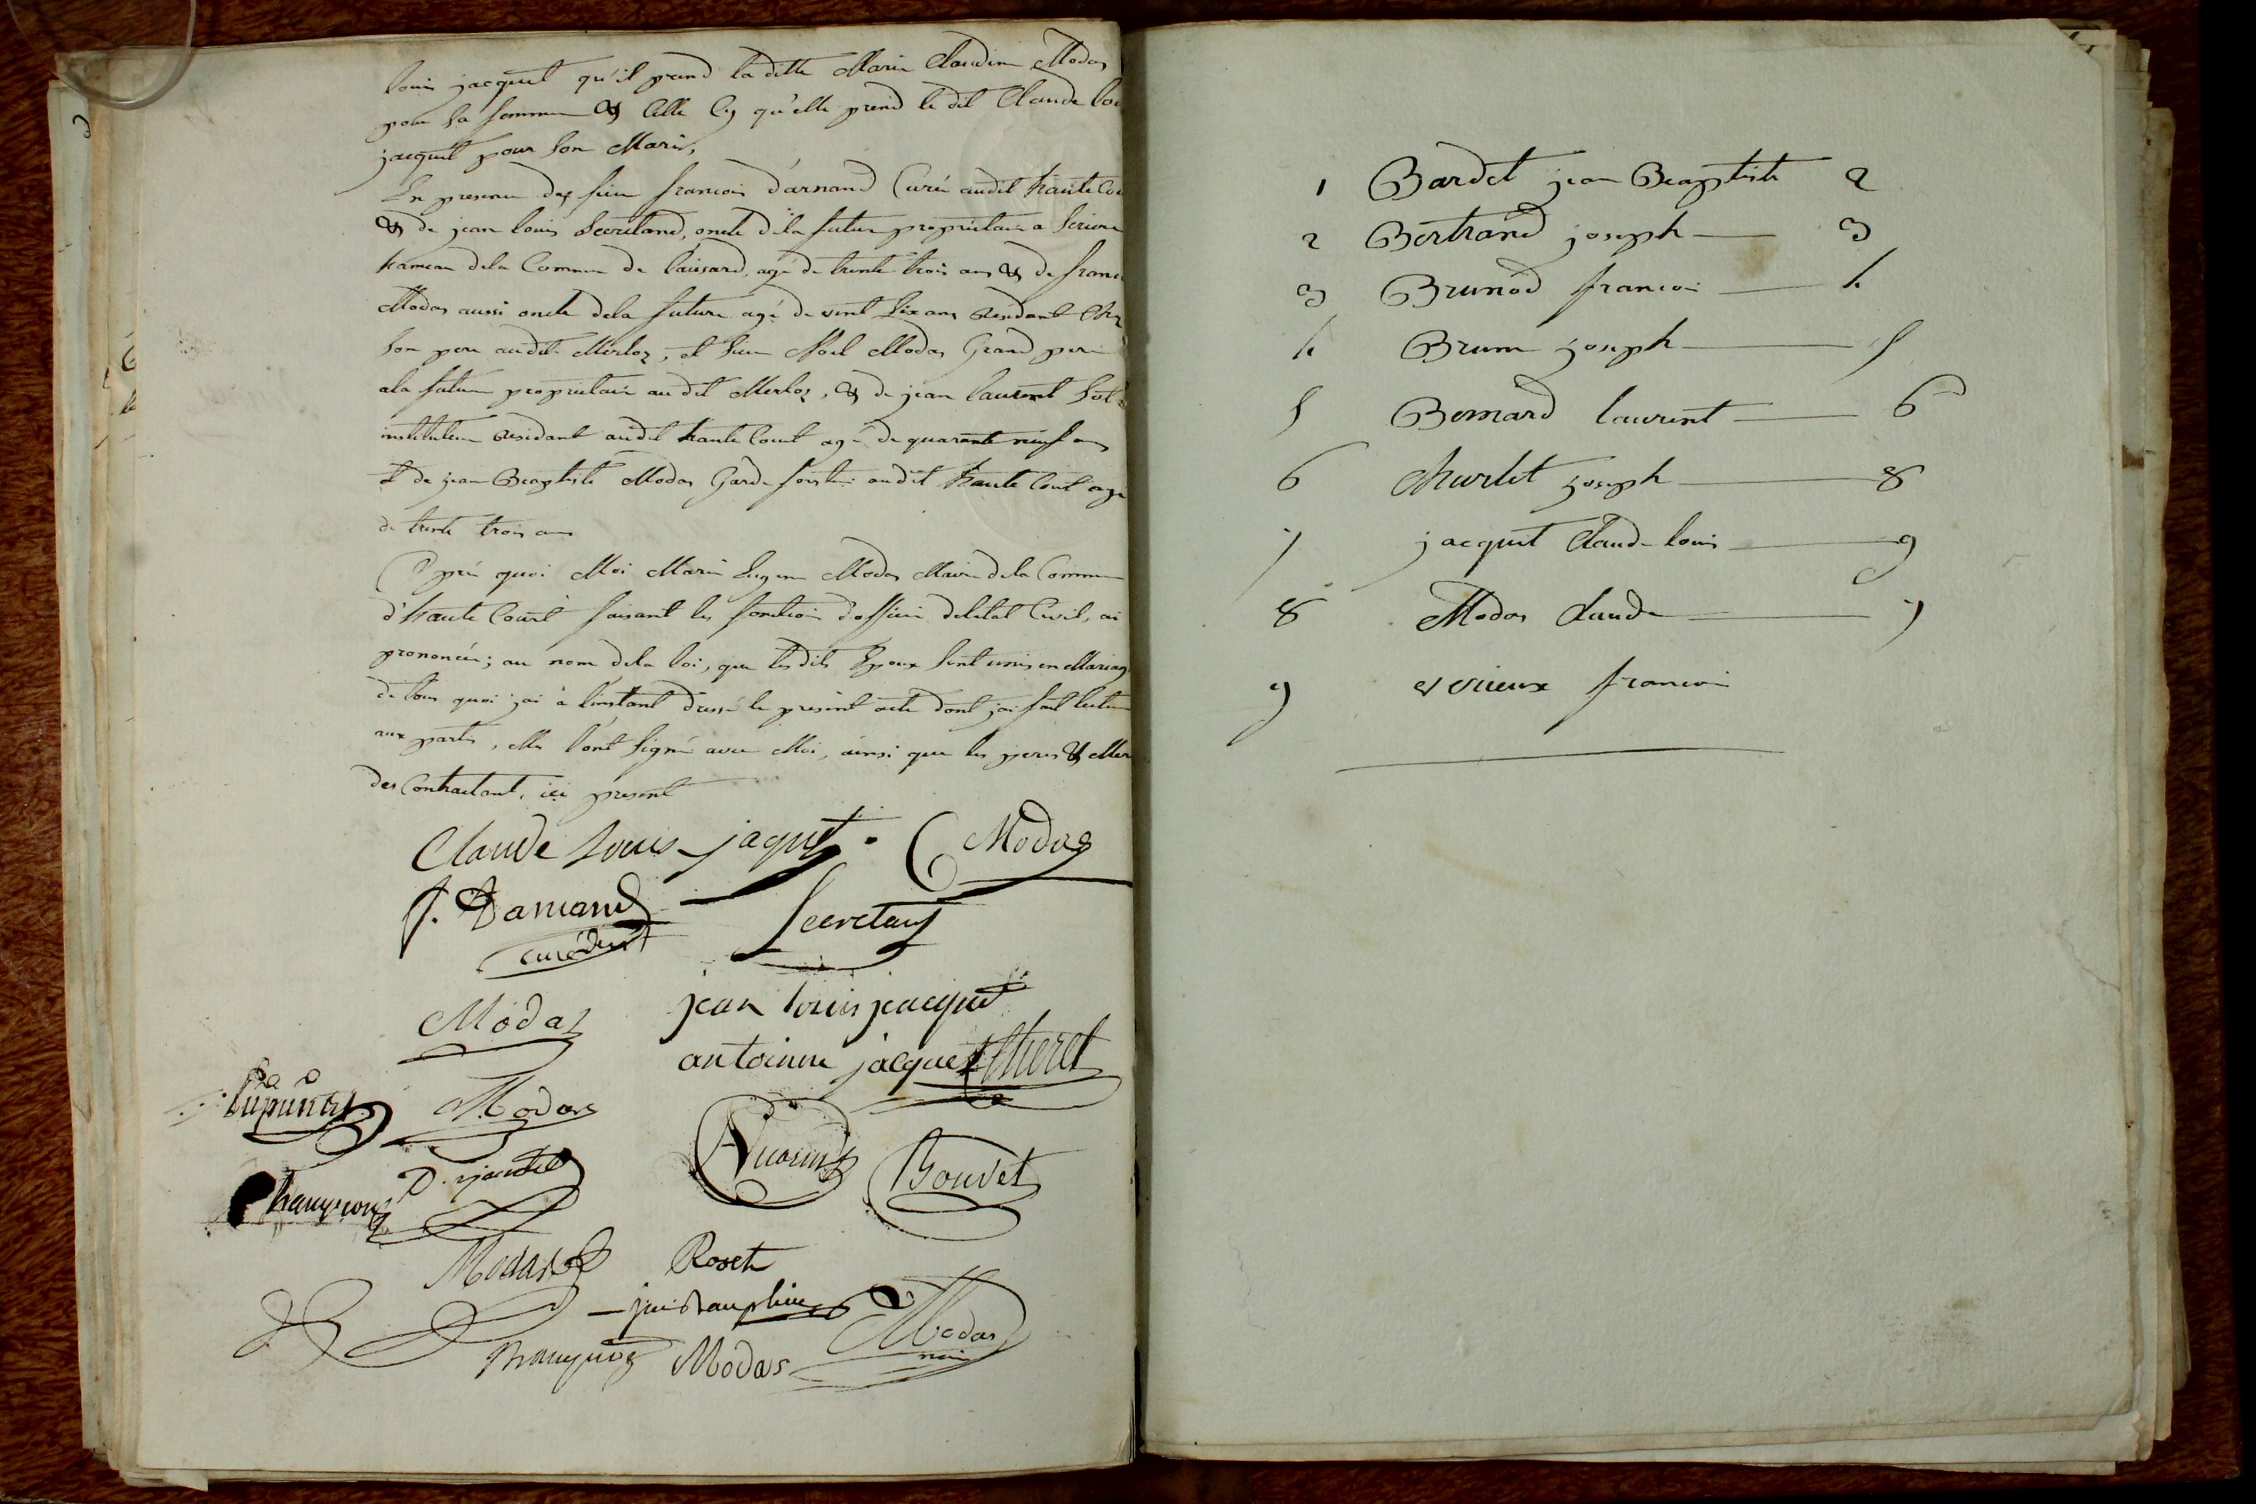 louis jacquet qu'il prend la ditte Marie Claudine Modas
pour sa femme & Celle Cy qu'elle prend le dit Claude lou
jacquet pour son Maris,
En presence des sieur francois d'arnand Curé audit haute Cou
& de jean louis Secretand, oncle dela future propriétaire a
hameau dela Commune de laissard, agé de trente trois ans & de franc
Modas aussi oncle dela future agé de vint six ans residant Chez
son pere audit Merloz, et sieur Noel Modas Grand pere
ala future propriétaire audit Merloz, & de jean laurent
instituteur residant audit haute Court agé de quarante neuf ans
et de jean Beaptiste Modas Garde forestier audit haute Court agé
de trente trois ans
Après quoi Moi Marie Eugene Modas Maire dela Commune
d'haute Court faisant les fonction d'officier deletat Civil, ai
prononcée; au nom dela loi, que lesdits Epoux sont unis en Mariag
de tous quoi jai à l'instant dressé le present acte dont jai fait lecture
aux partis, elles l'ont signé avec Moi, ainsi que les peres & Mer
des Contractant, ici présent
Claude Louis jaquet. C Modas
f. Darnand Secretant
curé
Modas jean louis jacquet
antoinne jacquet
Modas
Bouvet
Modas Roset
Modas
Modas
1 Bardet jean Beaptiste 2
2 Bertrand joseph 3
3 Brunod francoi 4
4 Brun joseph 5
5 Bernard laurent 6
6 Churlet joseph 8
7 jacquet Claude louis 9
8 Modas Claude 7
9 verieux francoi